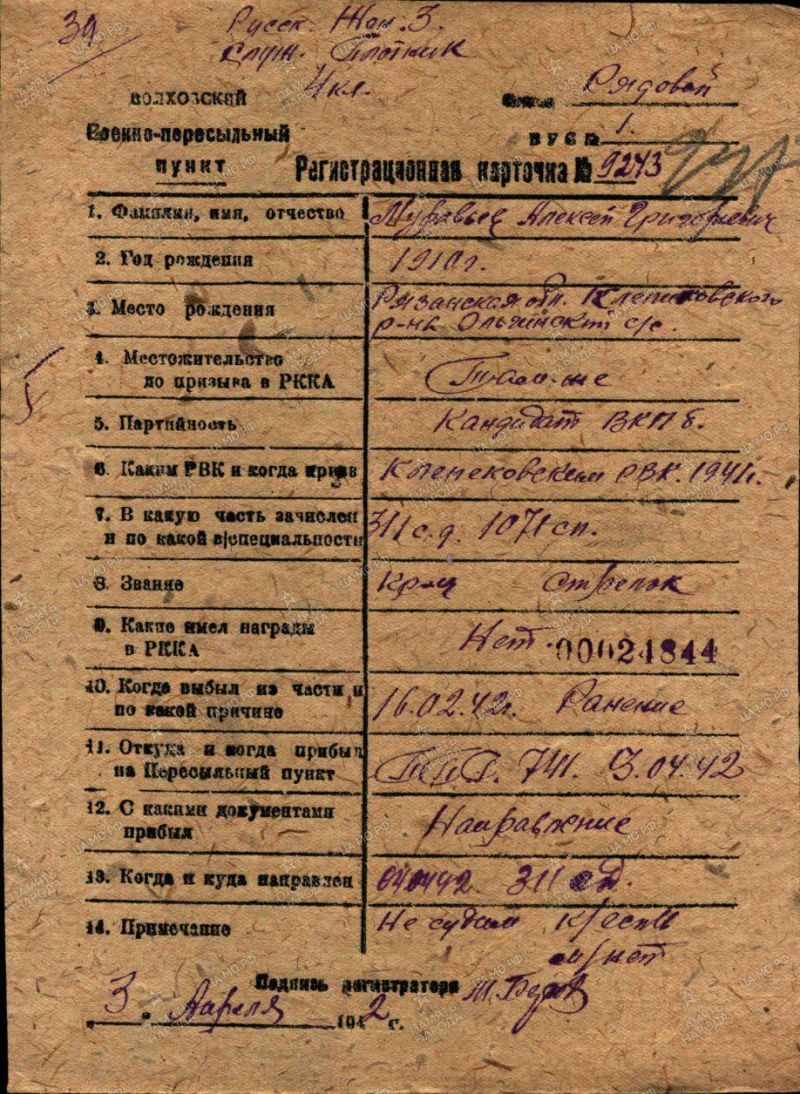 39
Русск. Жен. 3.
Служ. Плотник
4 кл.
ВОЛХОВСКИЙ
Военно-пересыльный
пункт
Рядовой
ВУС № 1.
Регистрационная карточка № 9243
1. Фамилия, имя, отчество Муравьев Алексей Григорьевич
2. Год рождения 1910 г.
3. Место рождения Рязанская обл. Клепиковского
р-на Ольгинский с/с.
4. Местожительство
до призыва в РККА Там-же
5. Партийность Кандидат ВКП б.
6. Каким РВК и когда призв РВК. 1941 г.
7. В какую часть зачислен
и по какой в/специальности 311 с.д. 1071 сп.
8. Звание Кр-ц Стрелок
9. Какие имел награды
в РККА Нет.
00024844
10. Когда выбыл из части и
по какой причине 16.02.42 г. Ранение
11. Откуда и когда прибыл
на Пересыльный пункт ППГ. 741. 3.04.42
12. С какими документами
прибыл Направление
13. Когда и куда направлен 040442. 311 сд.
14. Примечание Не судим
Подпись регистратора
3 " Апреля 1942 г.